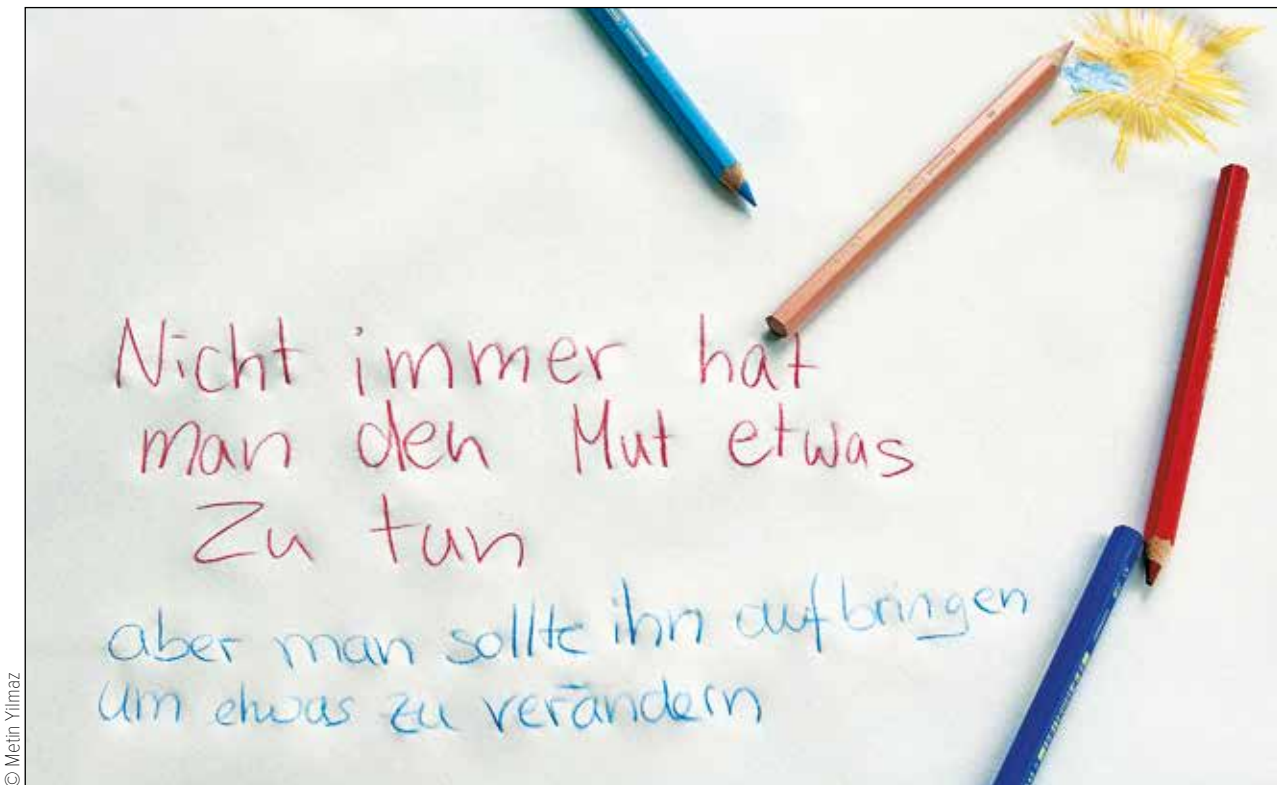 Nicht immer hat
man den Mut etwas
Zu tun
aber man sollte ihn aufbringen
um etwas zu verändern
© Metin Yilmaz